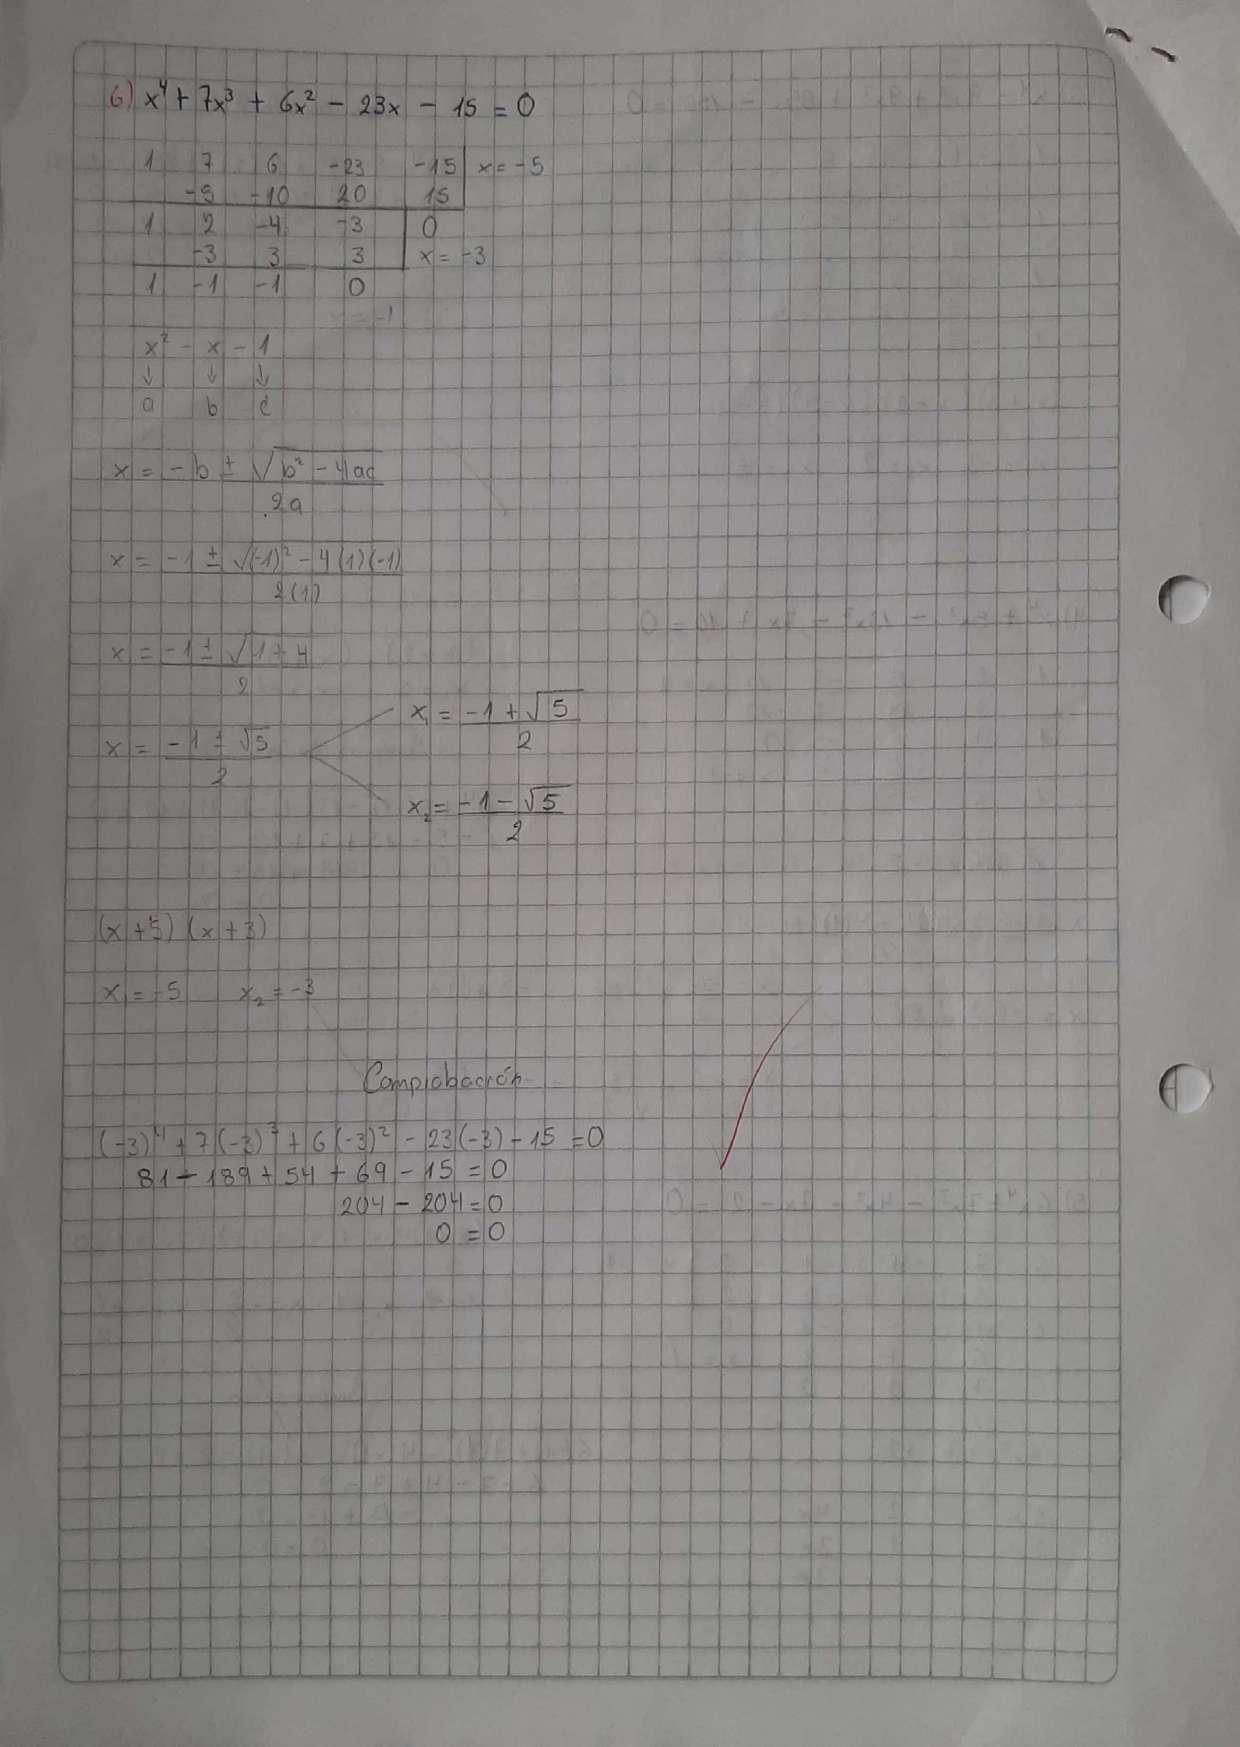 6) x⁴ + 7x³ + 6x² - 23x - 15 = 0
1 7 6 -23 -15 x = -5
-5 -10 20 15
1 2 -4 -3 0
-3 3 3 x = -3
1 -1 -1 0
x = -1
x² - x - 1
↓ ↓ ↓
a b c
x = -b ± √b² - 4ac / 2a
x = -1 ± √(-1)² - 4(1)(-1) / 2(1)
x = -1 ± √1 + 4 / 2
x₁ = -1 + √5 / 2
x = -1 ± √5 / 2
x₂ = -1 - √5 / 2
(x + 5) (x + 3)
x₁ = -5 x₂ = -3
Comprobación
(-3)⁴ + 7(-3)³ + 6(-3)² - 23(-3) - 15 = 0
81 - 189 + 54 + 69 - 15 = 0
204 - 204 = 0
0 = 0